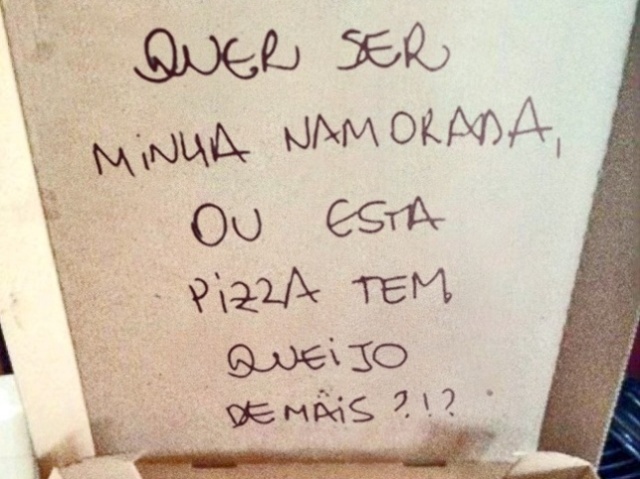 QUER SER
MINHA NAMORADA,
OU ESTA
PIZZA TEM
QUEIJO
DEMAIS?!?